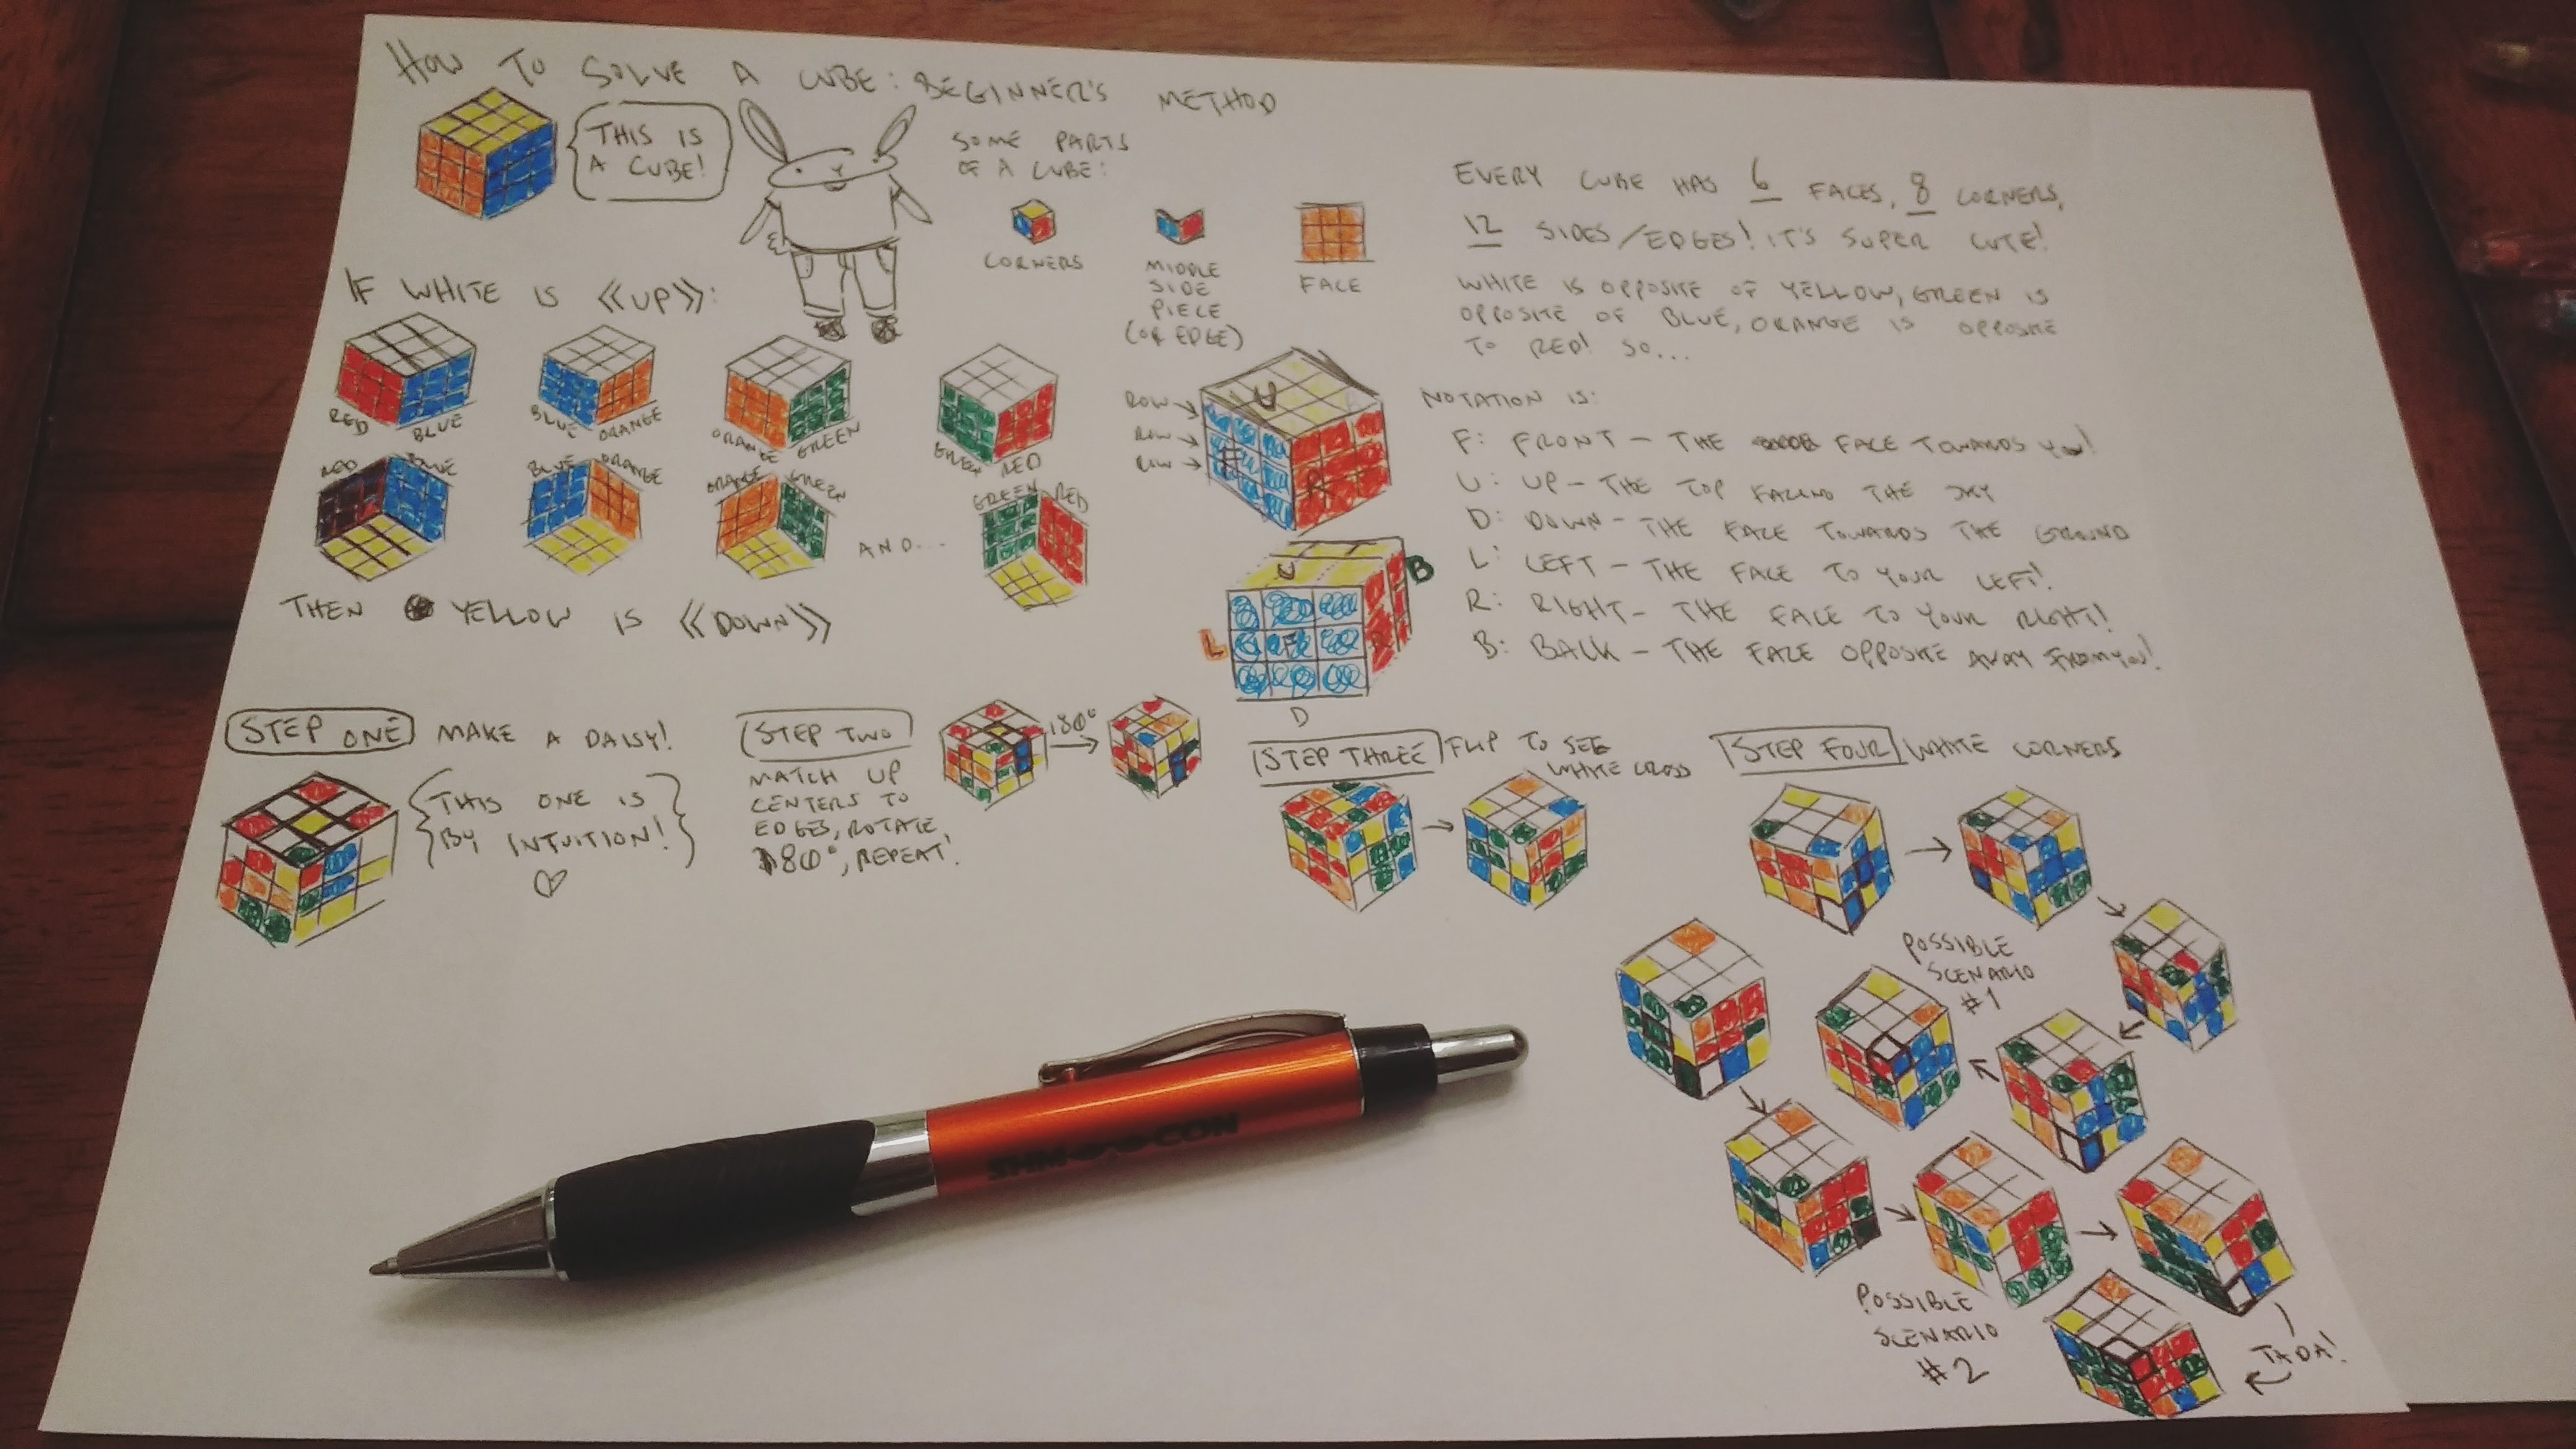 HOW TO SOLVE A CUBE: BEGINNER'S METHOD
THIS IS
A CUBE!
SOME PARTS
OF A CUBE:
CORNERS
MIDDLE
SIDE
PIECE
(OR EDGE)
FACE
EVERY CUBE HAS 6 FACES, 8 CORNERS,
12 SIDES/EDGES! IT'S SUPER CUTE!
WHITE IS OPPOSITE OF YELLOW, GREEN IS
OPPOSITE OF BLUE, ORANGE IS OPPOSITE
TO RED! SO...
IF WHITE IS «UP»:
RED BLUE
BLUE ORANGE
ORANGE GREEN
GREEN RED
RED BLUE
BLUE ORANGE
ORANGE GREEN
AND...
GREEN RED
THEN YELLOW IS «DOWN»
ROW
ROW
ROW
U
F
R
U
B
L
F
R
D
NOTATION IS:
F: FRONT - THE FACE TOWARDS YOU!
U: UP - THE TOP FACING THE SKY
D: DOWN - THE FACE TOWARDS THE GROUND
L: LEFT - THE FACE TO YOUR LEFT!
R: RIGHT - THE FACE TO YOUR RIGHT!
B: BACK - THE FACE OPPOSITE AWAY FROM YOU!
STEP ONE MAKE A DAISY!
THIS ONE IS
BY INTUITION!
STEP TWO
MATCH UP
CENTERS TO
EDGES, ROTATE
180°, REPEAT!
180°
STEP THREE FLIP TO SEE
WHITE CROSS
STEP FOUR WHITE CORNERS
POSSIBLE
SCENARIO
#1
POSSIBLE
SCENARIO
#2
TADA!
SHMOOCON